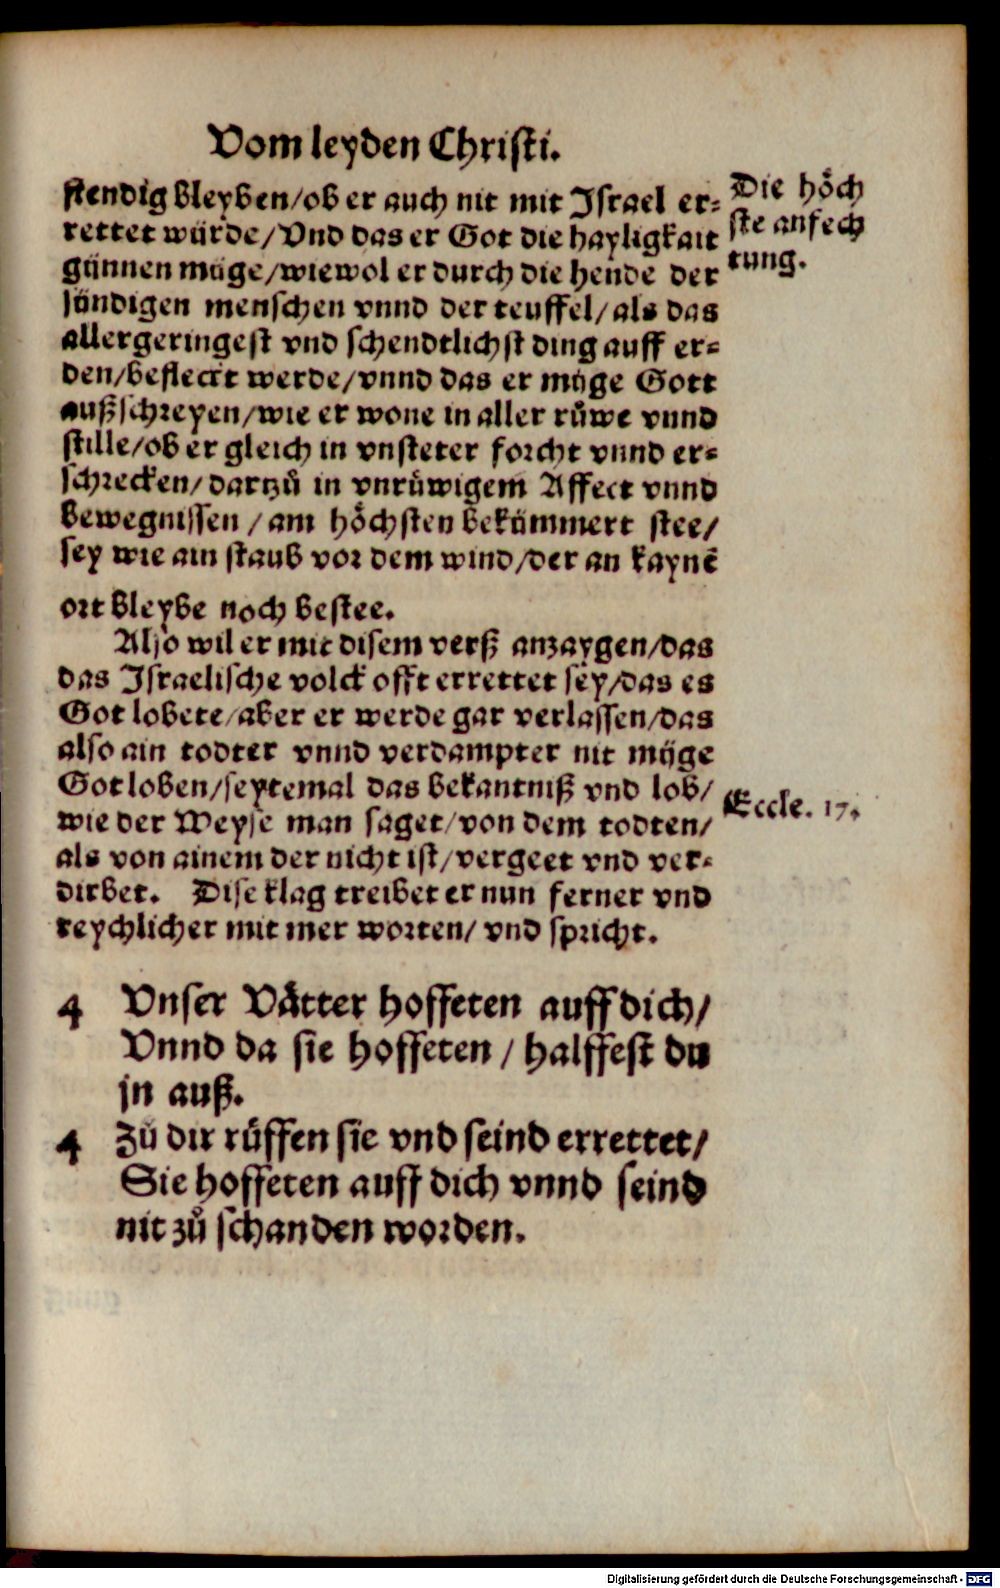 Vom leyden Christi.
stendig bleyben/ob er auch nit mit Israel er⸗
rettet würde/Vnd das er Got die hayligkait
günnen müge/wiewol er durch die hende der
sündigen menschen vnnd der teuffel/als das
allergeringest vnd schendtlichst ding auff er⸗
den/befleckt werde/vnnd das er müge Gott
außschreyen/wie er wone in aller růwe vnnd
stille/ob er gleich in vnsteter forcht vnnd er⸗
schrecken/dartzů in vnrůwigem Affect vnnd
bewegnissen/am hoͤchsten bekümmert stee/
sey wie ain staub vor dem wind/der an kaynē
ort bleybe noch bestee.
Die hoͤch
ste anfech
tung.
Also wil er mit disem verß anzaygen/das
das Israelische volck offt errettet sey/das es
Got lobete/aber er werde gar verlassen/das
also ain todter vnnd verdampter nit müge
Got loben/seytemal das bekantniß vnd lob/
wie der Weyse man saget/von dem todten/
als von ainem der nicht ist/vergeet vnd ver⸗
dirbet. Dise klag treibet er nun ferner vnd
reychlicher mit mer worten/vnd spricht.
Eccle. 17.
4 Vnser Vaͤtter hoffeten auff dich/
Vnnd da sie hoffeten/halffest du
jn auß.
4 Zů dir růffen sie vnd seind errettet/
Sie hoffeten auff dich vnnd seind
nit zů schanden worden.
Digitalisierung gefördert durch die Deutsche Forschungsgemeinschaft - DFG